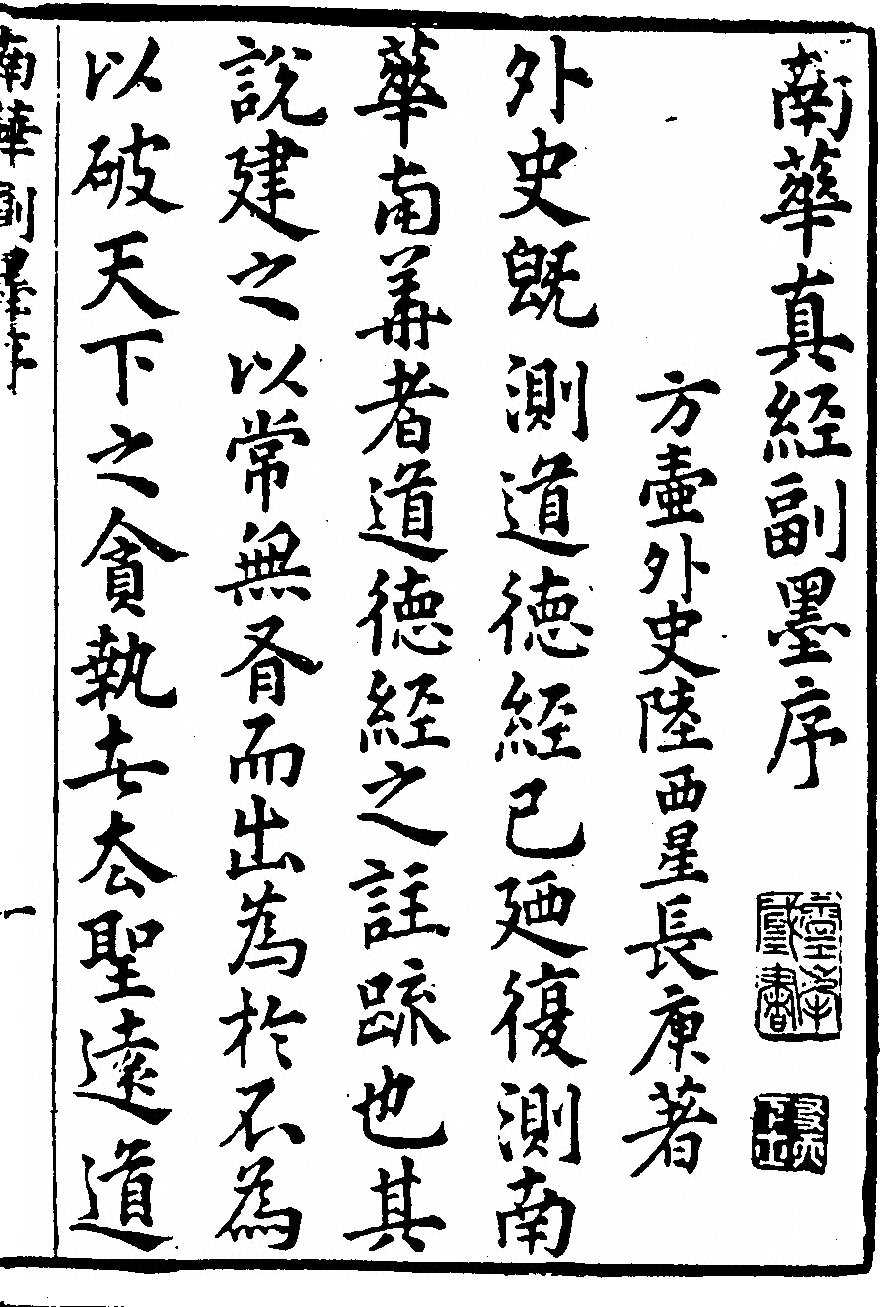 南華真經副墨序
方壺外史陸西星長庚著
外史既測道德經已廼復測南
華南華者道德經之註䟽也其
說建之以常無有而出為於不為
以破天下之貪執去去聖遠道
南華副墨序
一